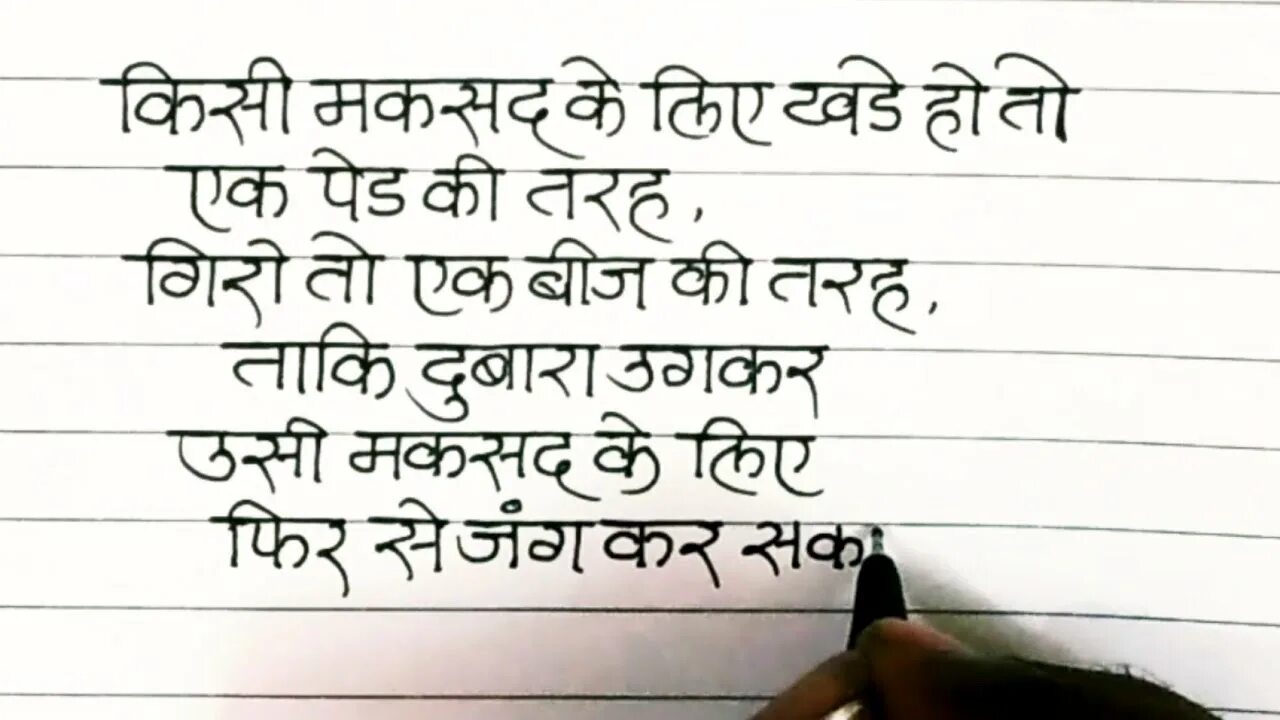 किसी मकसद के लिए खडे हो तो
एक पेड की तरह,
गिरो तो एक बीज की तरह,
ताकि दुबारा उगकर
उसी मकसद के लिए
फिर से जंग कर सक